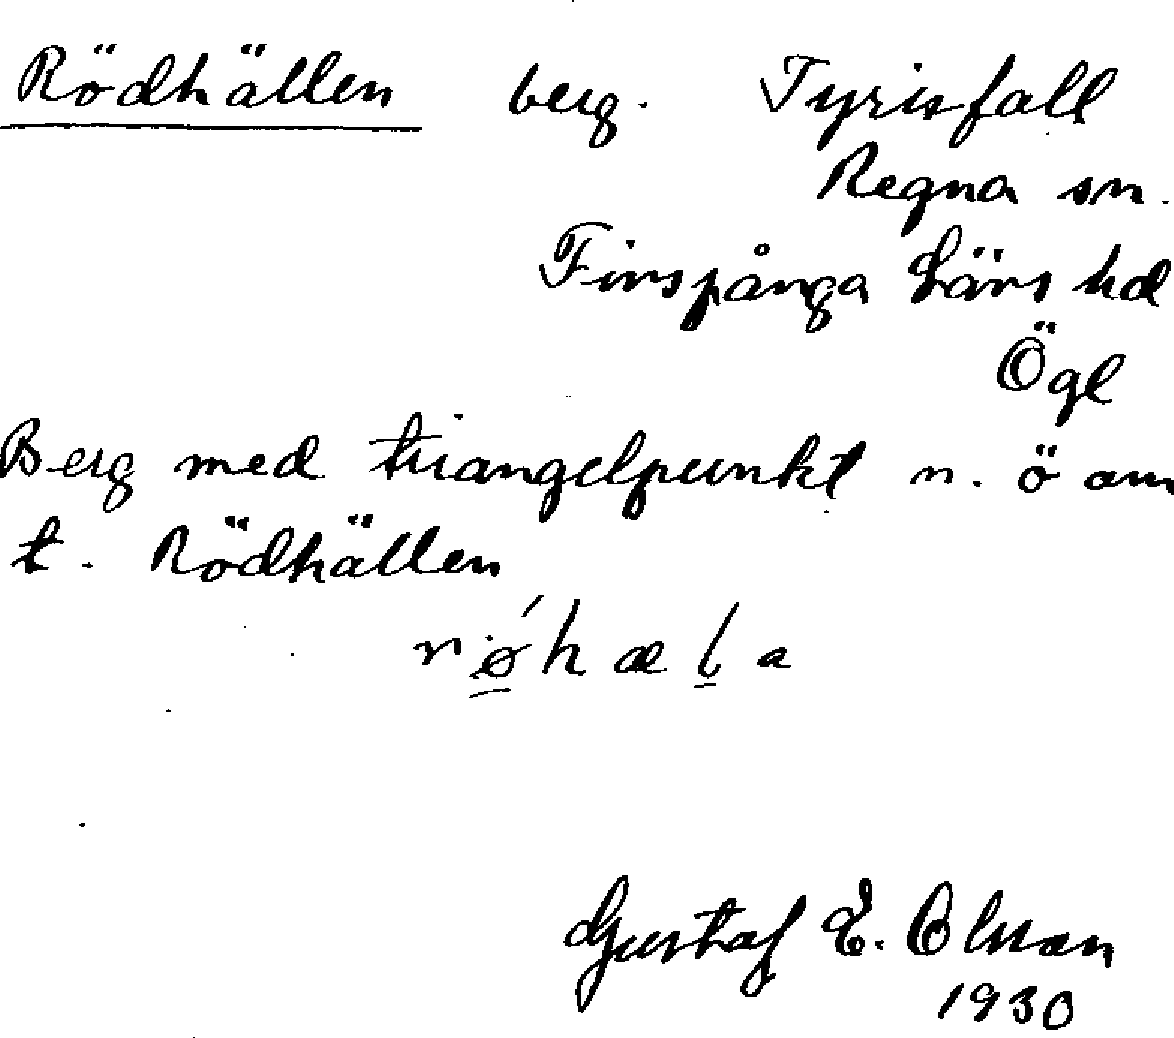 Rödhällen berg. Tyrisfall
Regna sn.
Finspånga läns hd
Ögl
Berg med triangelpunkt n. ö om
t. Rödhällen
rǿhæla
Gustaf E. Olsson
1930